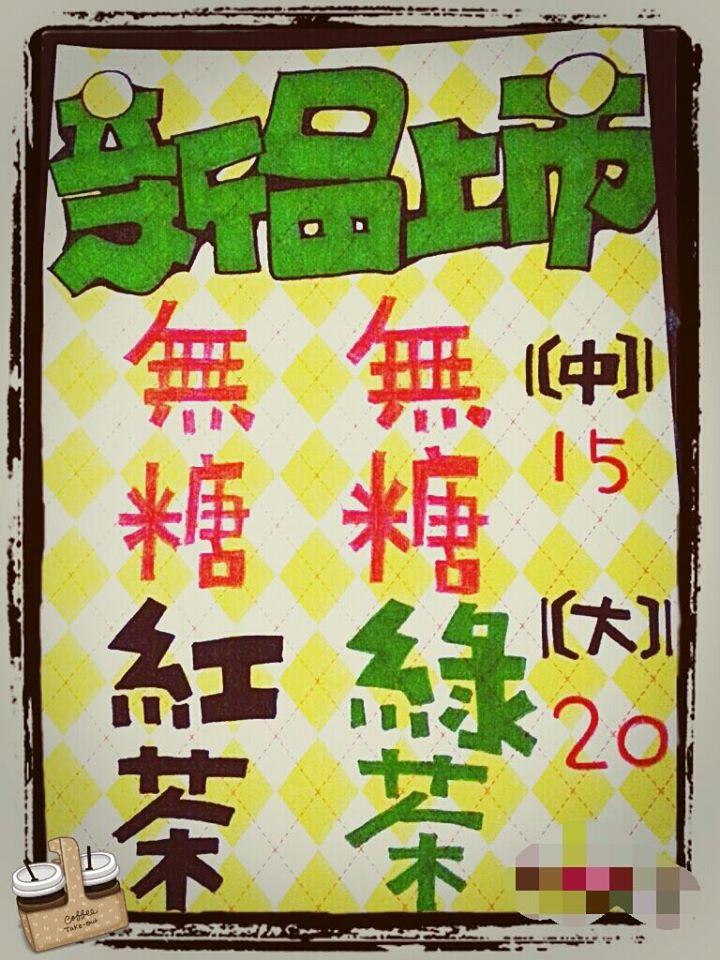 新品上市
無糖綠茶
無糖紅茶
【中】
15
【大】
20
Coffee
Take-out